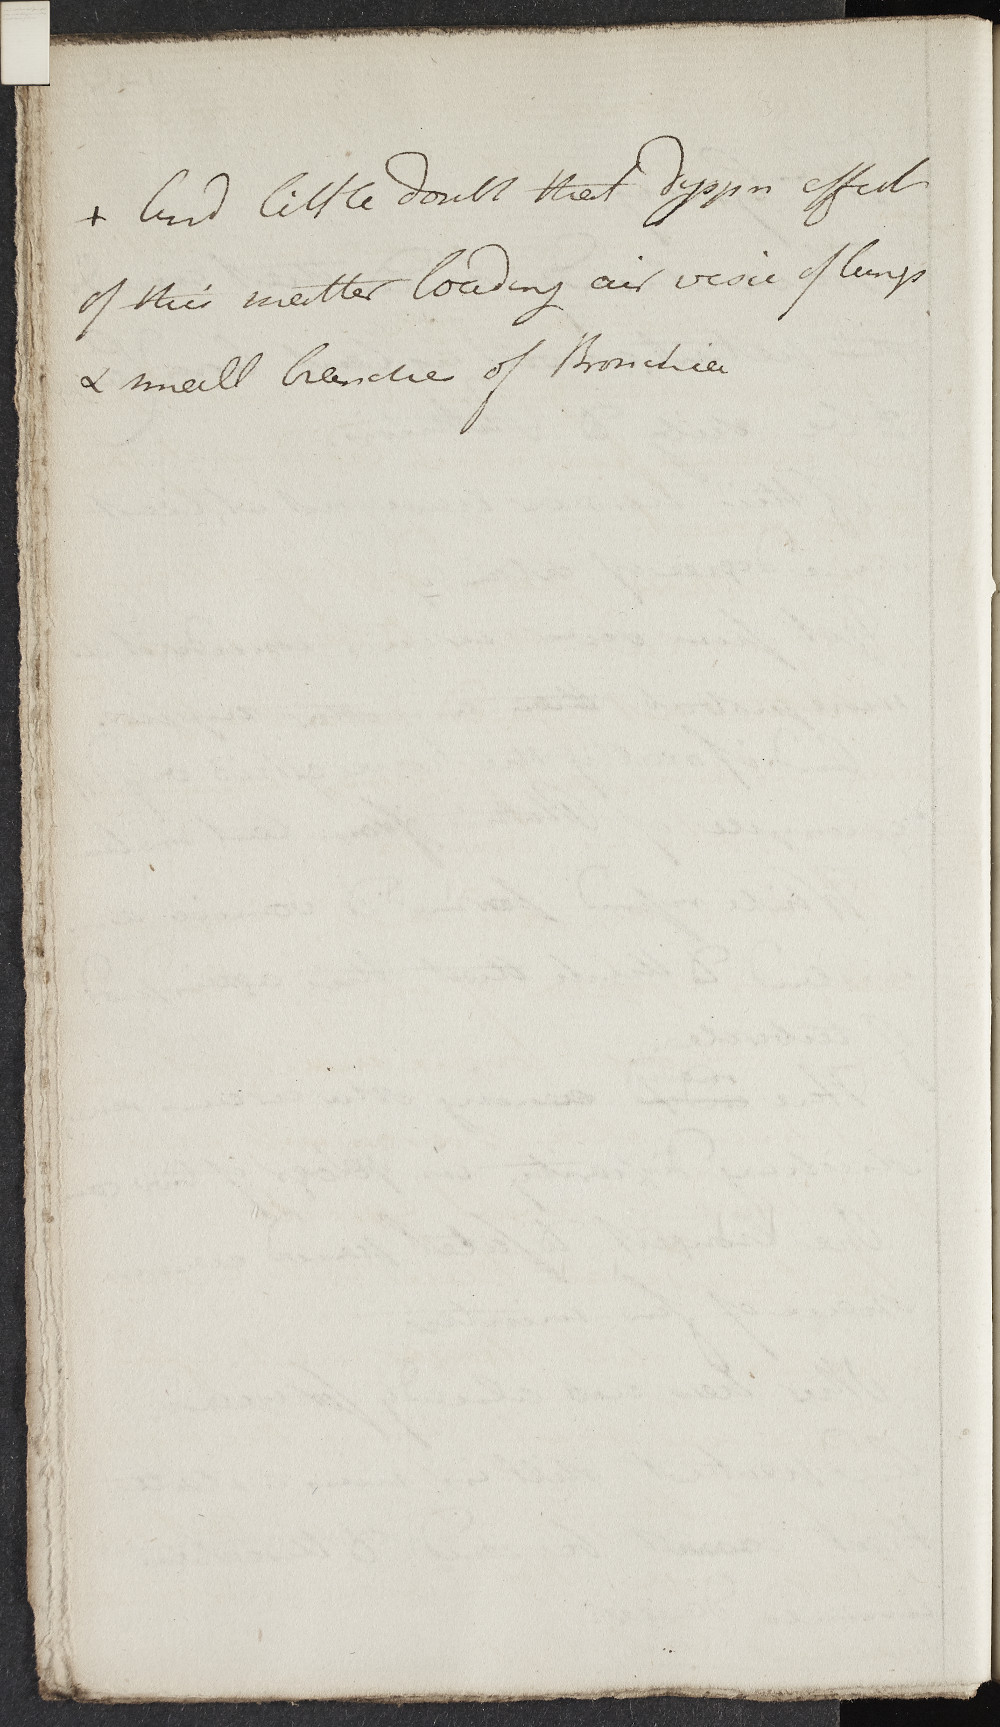 + And little doubt that dyspn effect
of this matter loading air vesic of lungs
& small branches of Bronchia